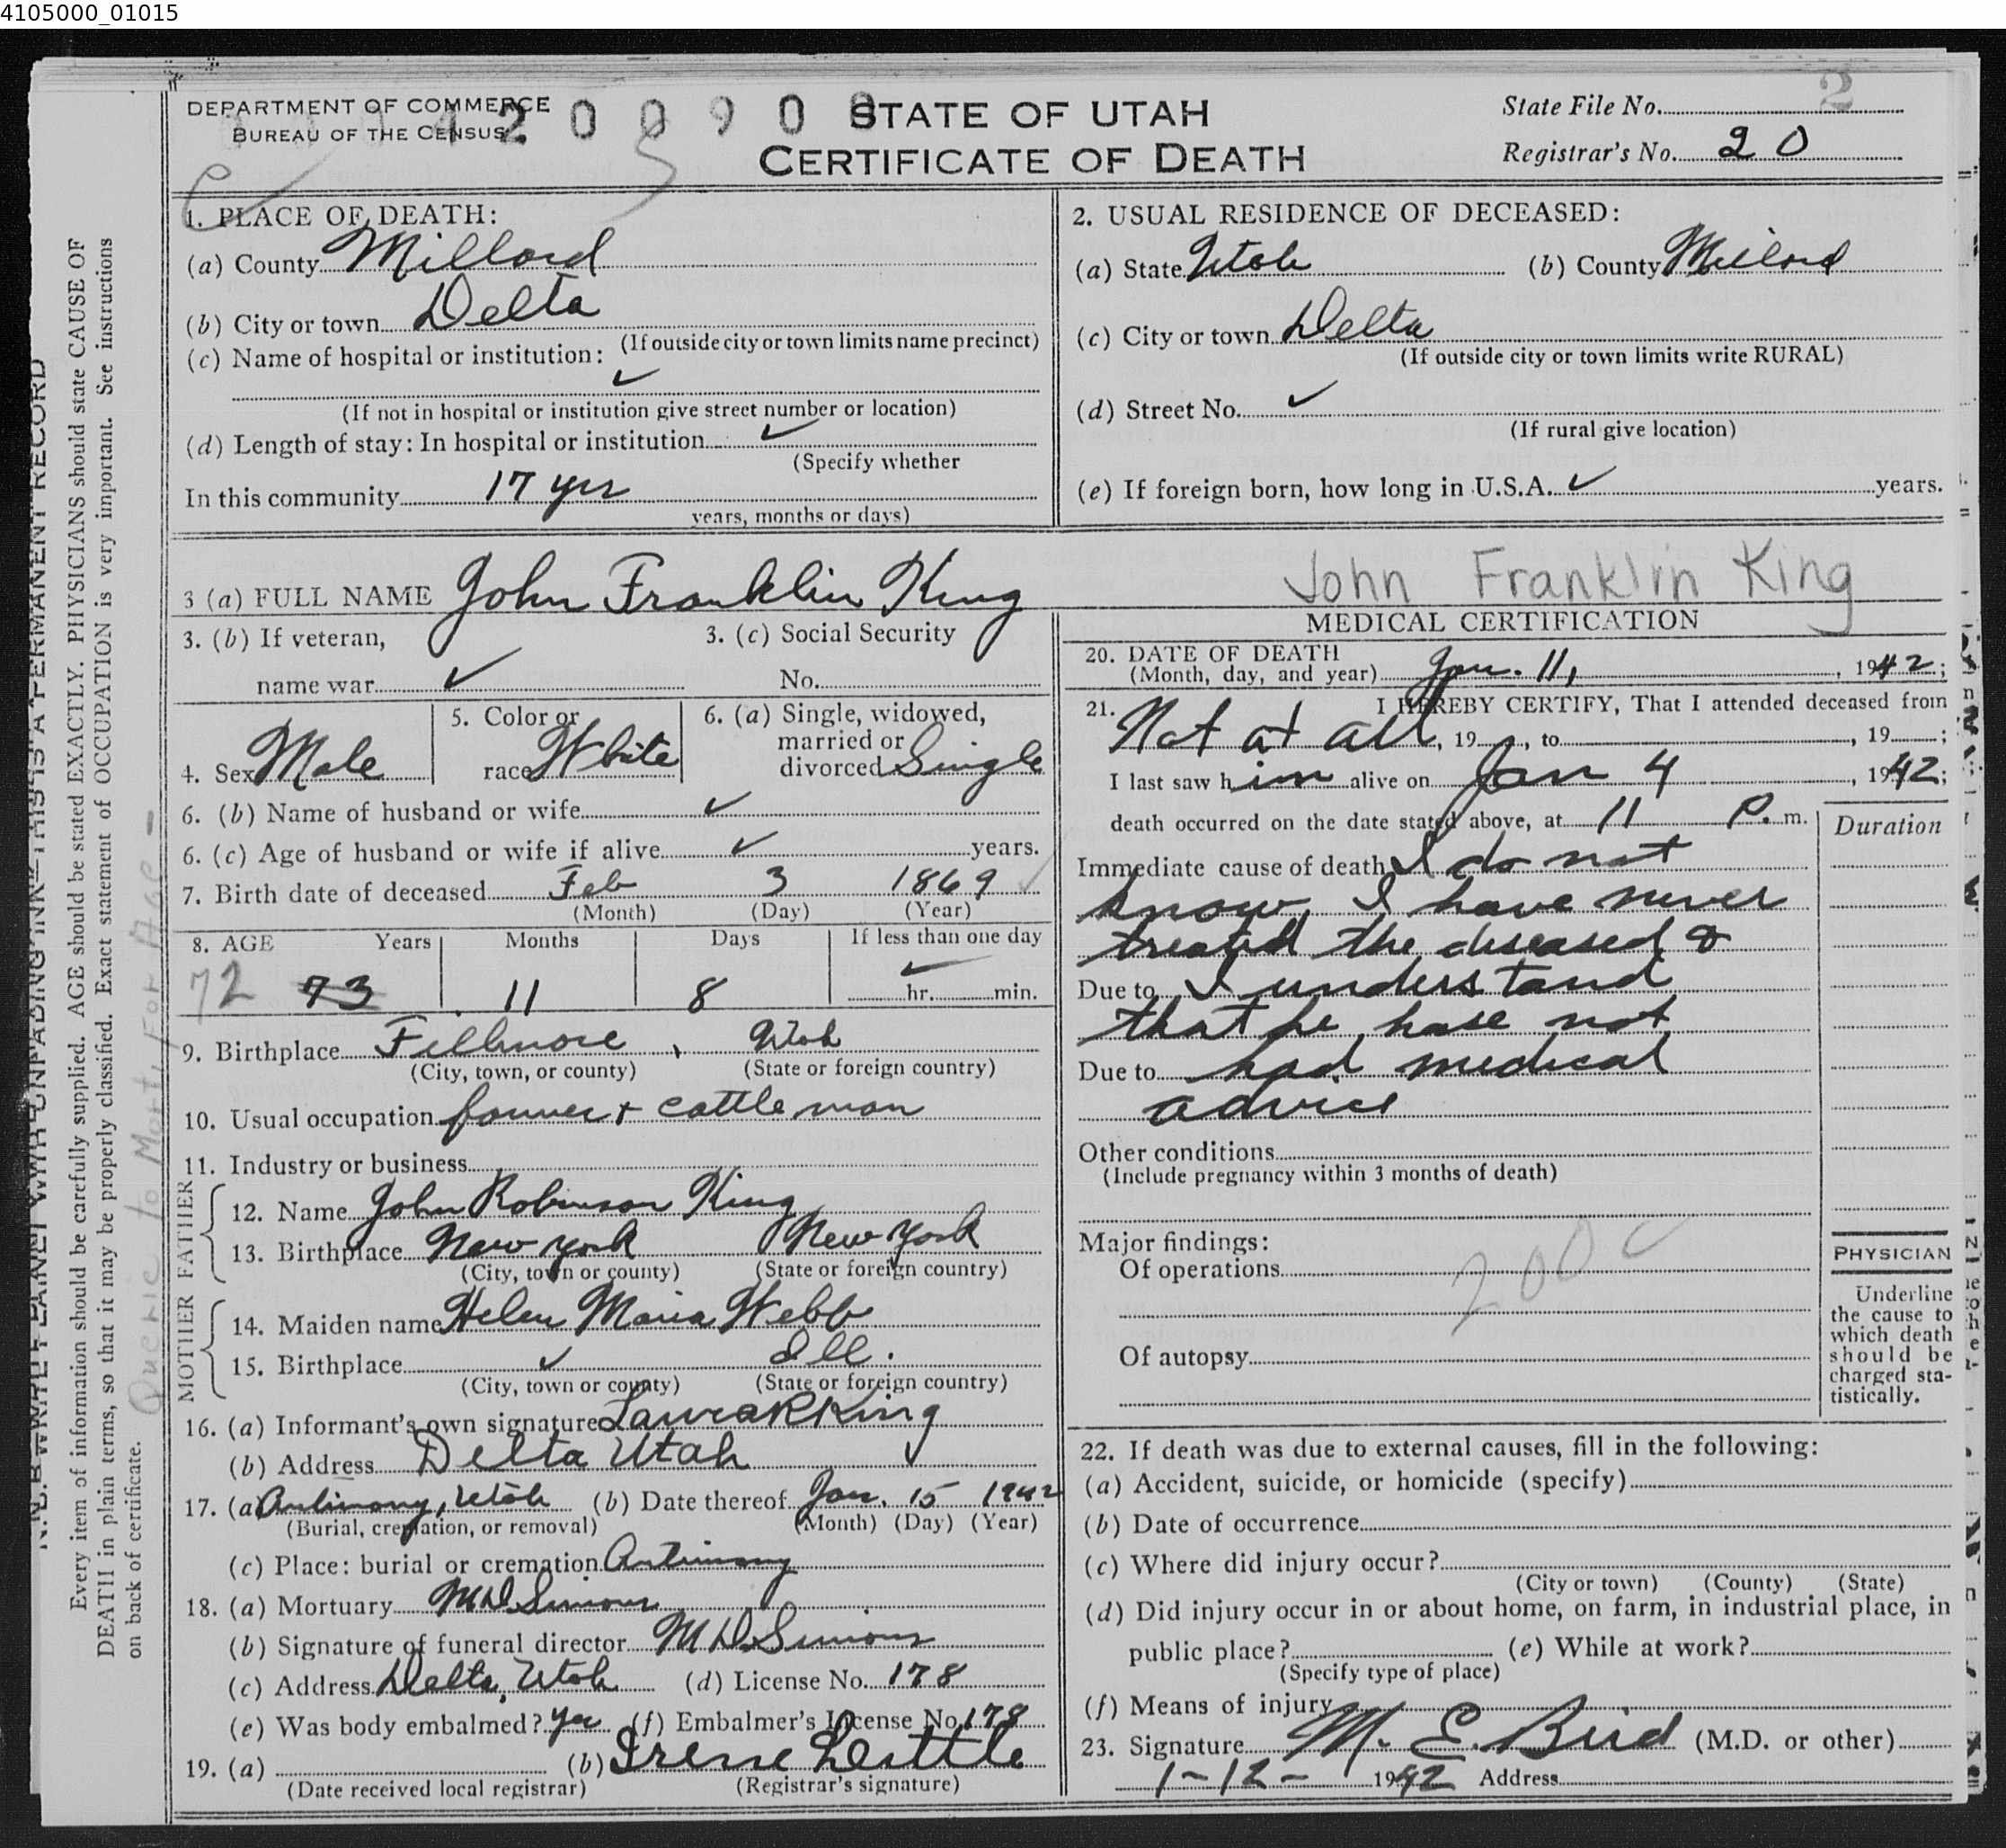 4105000_01015
DEPARTMENT OF COMMERCE
BUREAU OF THE CENSUS
2 0 0 9 0
STATE OF UTAH
CERTIFICATE OF DEATH
State File No. 2
Registrar's No. 20
1. PLACE OF DEATH:
(a) County Millard
(b) City or town Delta
(If outside city or town limits name precinct)
(c) Name of hospital or institution: ✓
(If not in hospital or institution give street number or location)
(d) Length of stay: In hospital or institution ✓
(Specify whether
In this community 17 yrs
years, months or days)
2. USUAL RESIDENCE OF DECEASED:
(a) State Utah (b) County Millard
(c) City or town Delta
(If outside city or town limits write RURAL)
(d) Street No. ✓
(If rural give location)
(e) If foreign born, how long in U.S.A. ✓ years.
3 (a) FULL NAME John Franklin King
John Franklin King
3. (b) If veteran, 3. (c) Social Security
name war ✓ No.
4. Sex Male 5. Color or race White 6. (a) Single, widowed, married or divorced Single
6. (b) Name of husband or wife ✓
6. (c) Age of husband or wife if alive ✓ years.
7. Birth date of deceased Feb 3 1869 ✓
(Month) (Day) (Year)
8. AGE Years Months Days If less than one day
72 73 11 8 ✓ hr. min.
9. Birthplace Fillmore, Utah
(City, town, or county) (State or foreign country)
10. Usual occupation farmer + cattle man
11. Industry or business
FATHER
12. Name John Robinson King
13. Birthplace New York New York
(City, town or county) (State or foreign country)
MOTHER
14. Maiden name Helen Maria Webb
15. Birthplace ✓ Ill.
(City, town or county) (State or foreign country)
16. (a) Informant's own signature Laura K King
(b) Address Delta Utah
17. (a) Antimony, Utah (b) Date thereof Jan. 15 1942
(Burial, cremation, or removal) (Month) (Day) (Year)
(c) Place: burial or cremation Antimony
18. (a) Mortuary M D Simons
(b) Signature of funeral director M D Simons
(c) Address Delta, Utah (d) License No. 178
(e) Was body embalmed? Yes (f) Embalmer's License No 178
19. (a) (b) Irene Listtle
(Date received local registrar) (Registrar's signature)
MEDICAL CERTIFICATION
20. DATE OF DEATH
(Month, day, and year) Jan. 11, 1942;
21. I HEREBY CERTIFY, That I attended deceased from
Not at all, 19 , to , 19 ;
I last saw him alive on Jan 4, 1942;
death occurred on the date stated above, at 11 P. m.
Duration
Immediate cause of death I do not
know, I have never
treated the diseased &
Due to I understand
that he hase not
Due to had medical
advice
Other conditions
(Include pregnancy within 3 months of death)
Major findings:
Of operations
200c
Of autopsy
PHYSICIAN
Underline
the cause to
which death
should be
charged sta-
tistically.
22. If death was due to external causes, fill in the following:
(a) Accident, suicide, or homicide (specify)
(b) Date of occurrence
(c) Where did injury occur?
(City or town) (County) (State)
(d) Did injury occur in or about home, on farm, in industrial place, in
public place? (e) While at work?
(Specify type of place)
(f) Means of injury
23. Signature M. E. Bird (M.D. or other)
1-12- 1942 Address
N. B. WRITE PLAINLY WITH UNFADING INK—THIS IS A PERMANENT RECORD
Every item of information should be carefully supplied. AGE should be stated EXACTLY. PHYSICIANS should state CAUSE OF
DEATH in plain terms, so that it may be properly classified. Exact statement of OCCUPATION is very important. See instructions
on back of certificate.
to Mort. For Age -